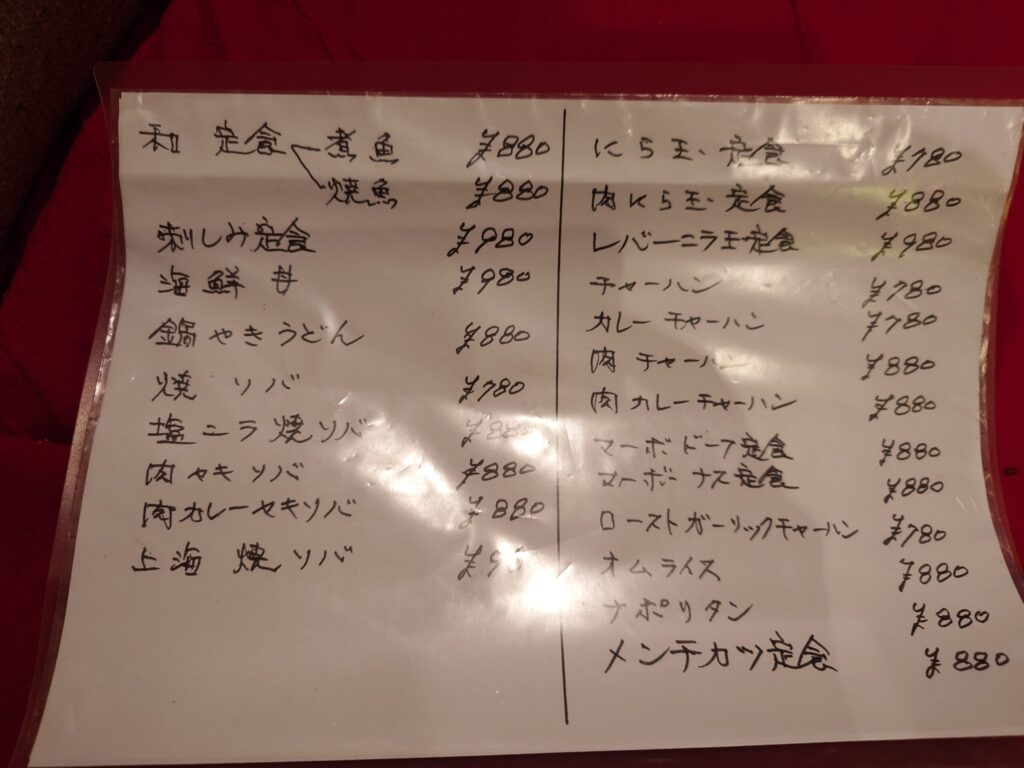 和 定食 煮魚 ¥880
焼魚 ¥880
刺しみ定食 ¥980
海鮮丼 ¥980
鍋やきうどん ¥880
焼ソバ ¥780
塩ニラ焼ソバ ¥880
肉ヤキソバ ¥880
肉カレーヤキソバ ¥880
上海焼ソバ
にら玉定食 ¥780
肉にら玉定食 ¥880
レバーニラ玉定食 ¥980
チャーハン ¥780
カレーチャーハン ¥780
肉チャーハン ¥880
肉カレーチャーハン ¥880
マーボドーフ定食 ¥880
マーボーナス定食 ¥880
ローストガーリックチャーハン ¥780
オムライス ¥880
ナポリタン ¥880
メンチカツ定食 ¥880